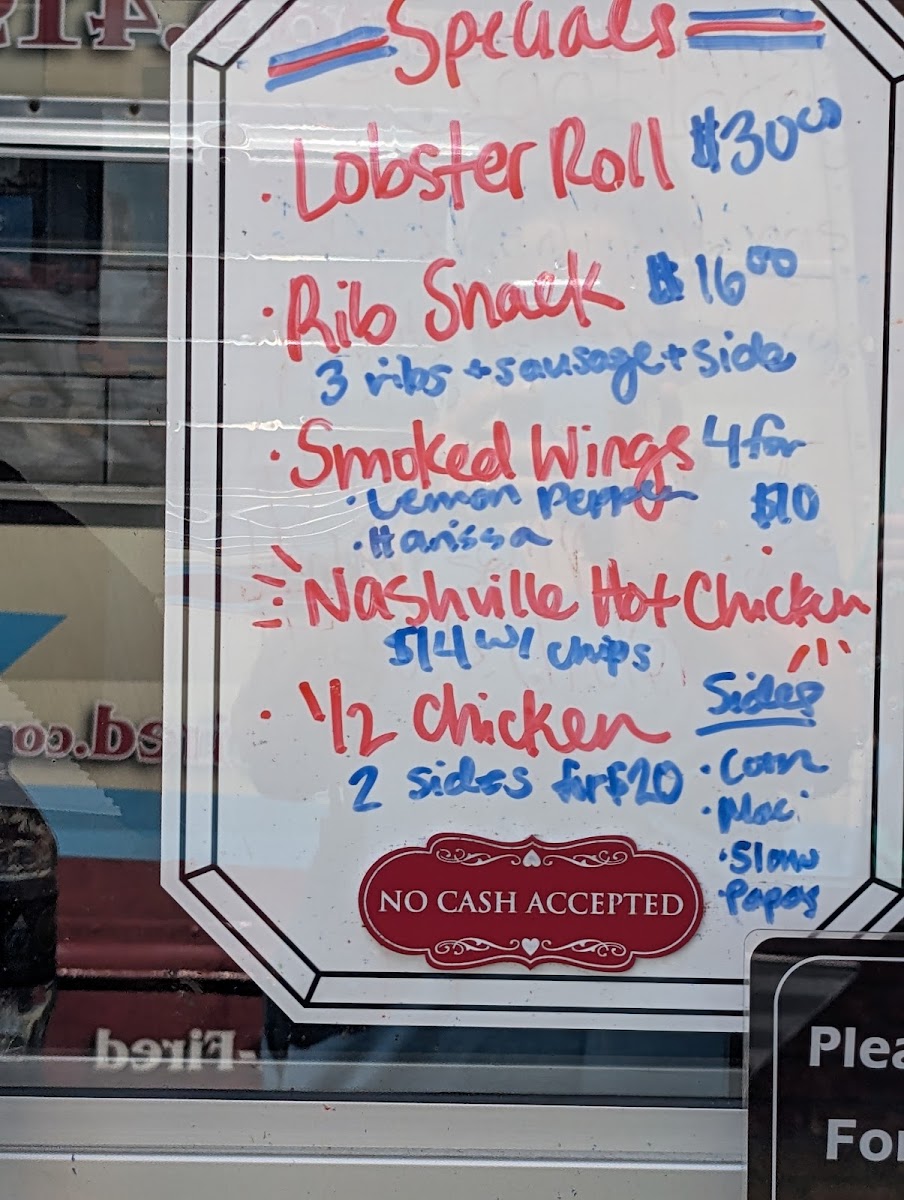 Specials
· Lobster Roll $30⁰⁰
· Rib Snack $16⁰⁰
3 ribs + sausage + side
· Smoked Wings 4 for
· Lemon Pepper $10
· Harissa
Nashville Hot Chicken
$14 w/ chips
· 1/2 Chicken
2 sides for $20
Sides
· Corn
· Mac
· Slaw
· Papas
NO CASH ACCEPTED
-Fired
Plea
For